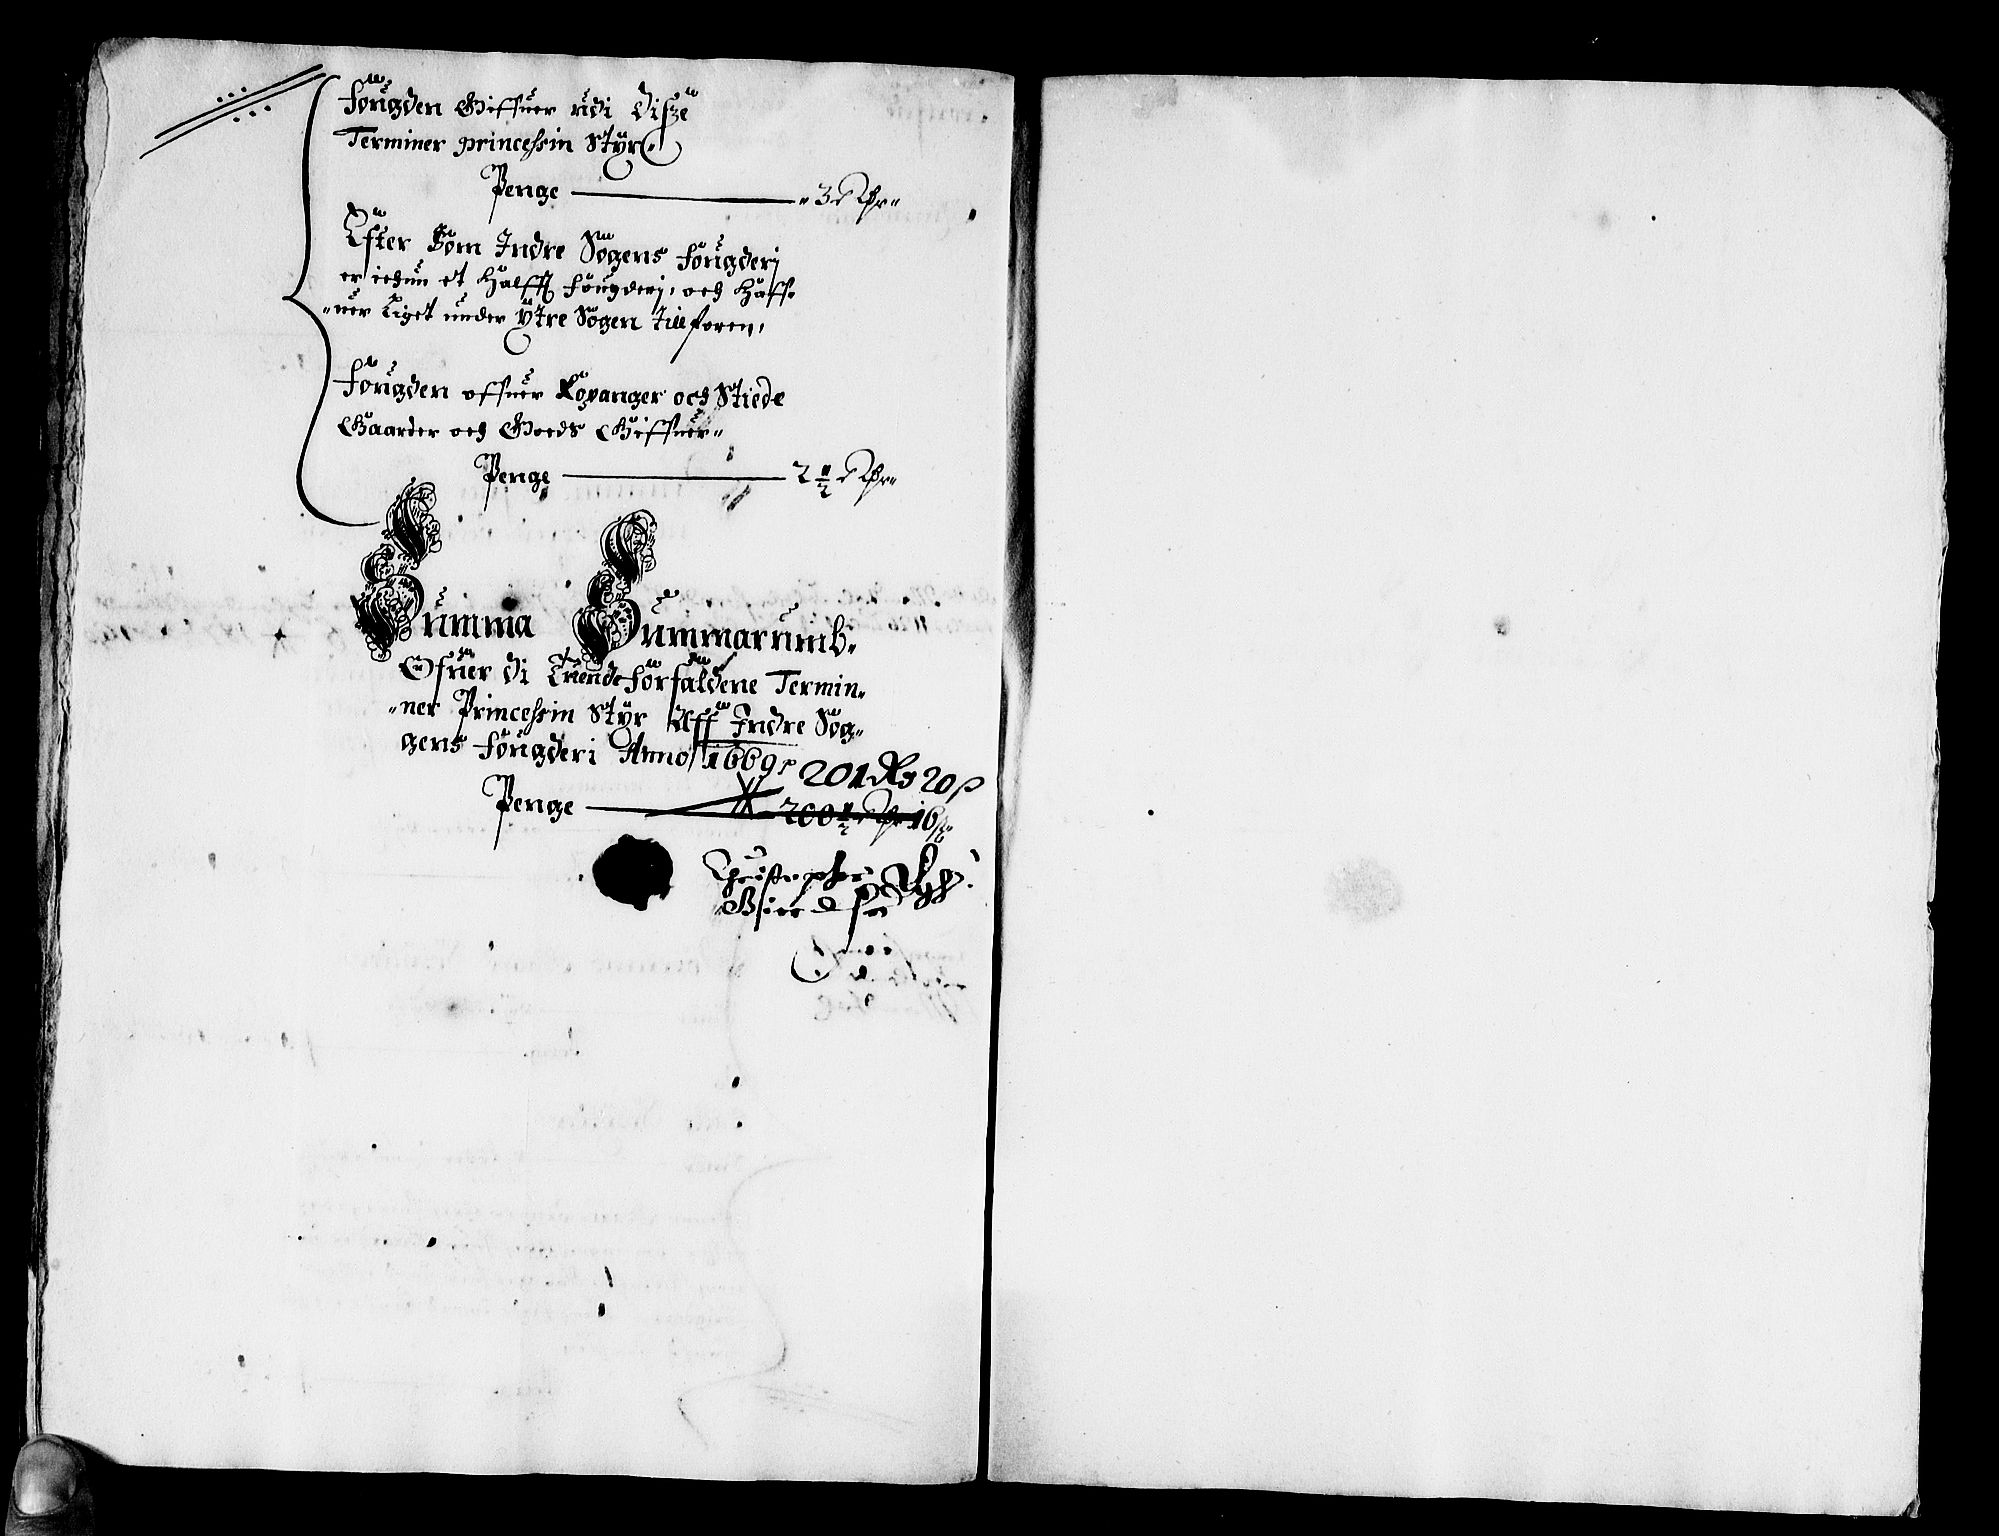 Fougden Giffuer udi Disze
Terminer princessin Styr
Penge 3 dr
Efter Som Indre Sogens fougderj
er ichun et Halfft fougderj, och Haff-
uer Liget under Ytre Sogen tillforen,
Fougden offuer Kopanger och Stiede
Gaarder och Goeds Giffuer
Penge 2½ dr
Summa Summarumb
Ofuer di Tuende forfaldene Termin-
ner Princessin Styr Aff Indre Sog-
gens fougderi Anno 1669
201 Rd 20 ß
Penge 200½ dr 16 ß
Christopher